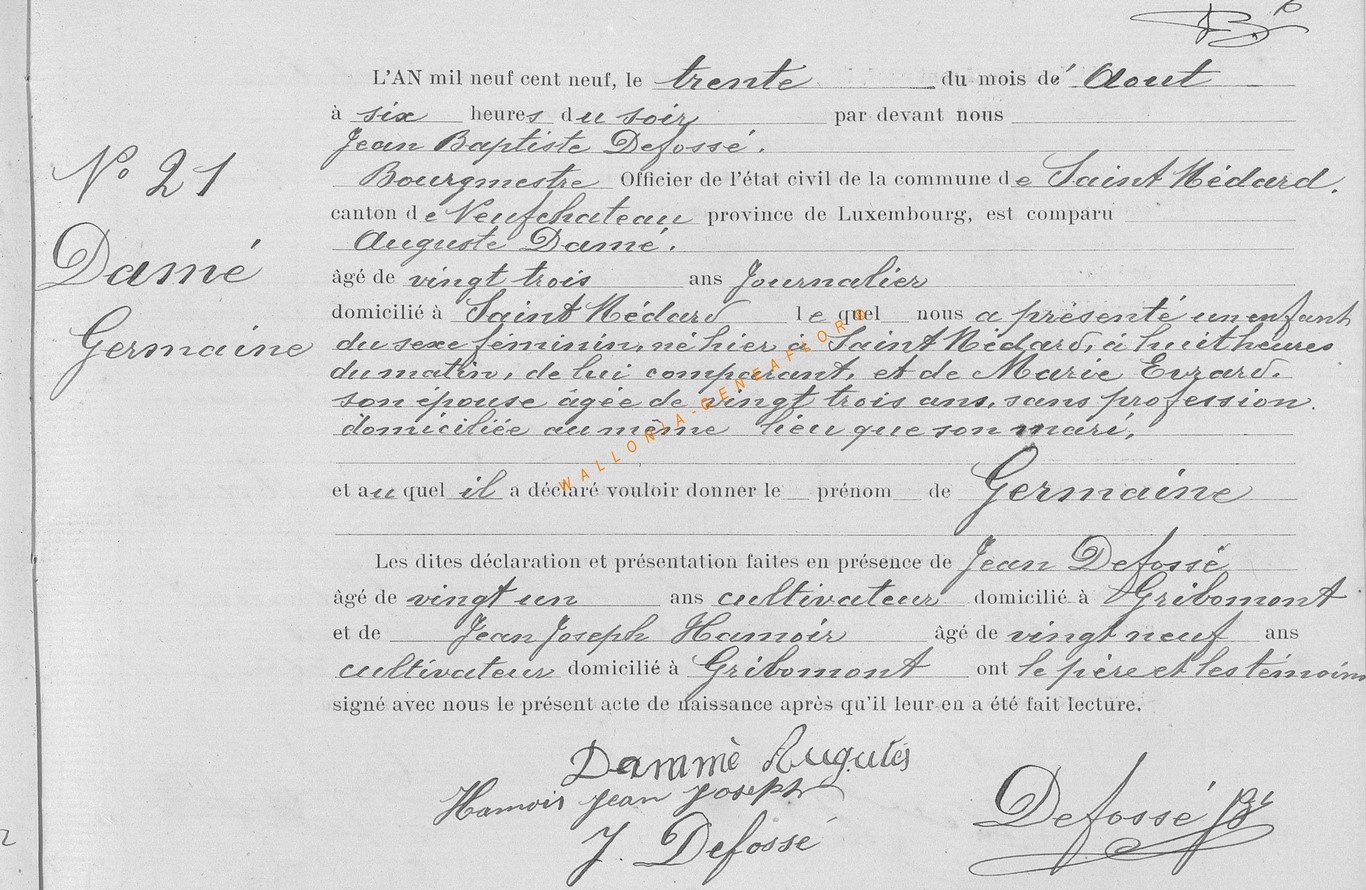 L'AN mil neuf cent neuf, le trente du mois de Aout
à six heures du soir par devant nous
Jean Baptiste Defossé.
Bourgmestre Officier de l'état civil de la commune de Saint Médard.
canton de Neufchateau province de Luxembourg, est comparu
Auguste Damé.
âgé de vingt trois ans Journalier
domicilié à Saint Médard le quel nous a présenté un enfant
du sexe féminin, né hier à Saint Médard, à huit heures
du matin, de lui comparant, et de Marie Evrard.
son épouse âgée de vingt trois ans, sans profession.
domiciliée au même lieu que son mari.
et au quel il a déclaré vouloir donner le prénom de Germaine
Les dites déclaration et présentation faites en présence de Jean Defossé
âgé de vingt un ans cultivateur domicilié à Gribomont
et de Jean Joseph Hamoir âgé de vingt neuf ans
cultivateur domicilié à Gribomont ont le père et les témoins
signé avec nous le présent acte de naissance après qu'il leur en a été fait lecture.
No 21
Damé
Germaine
WALLONIA-GENEAFLOR
Dammè Augutes
Hamoir jean joseph
J. Defossé
Defossé